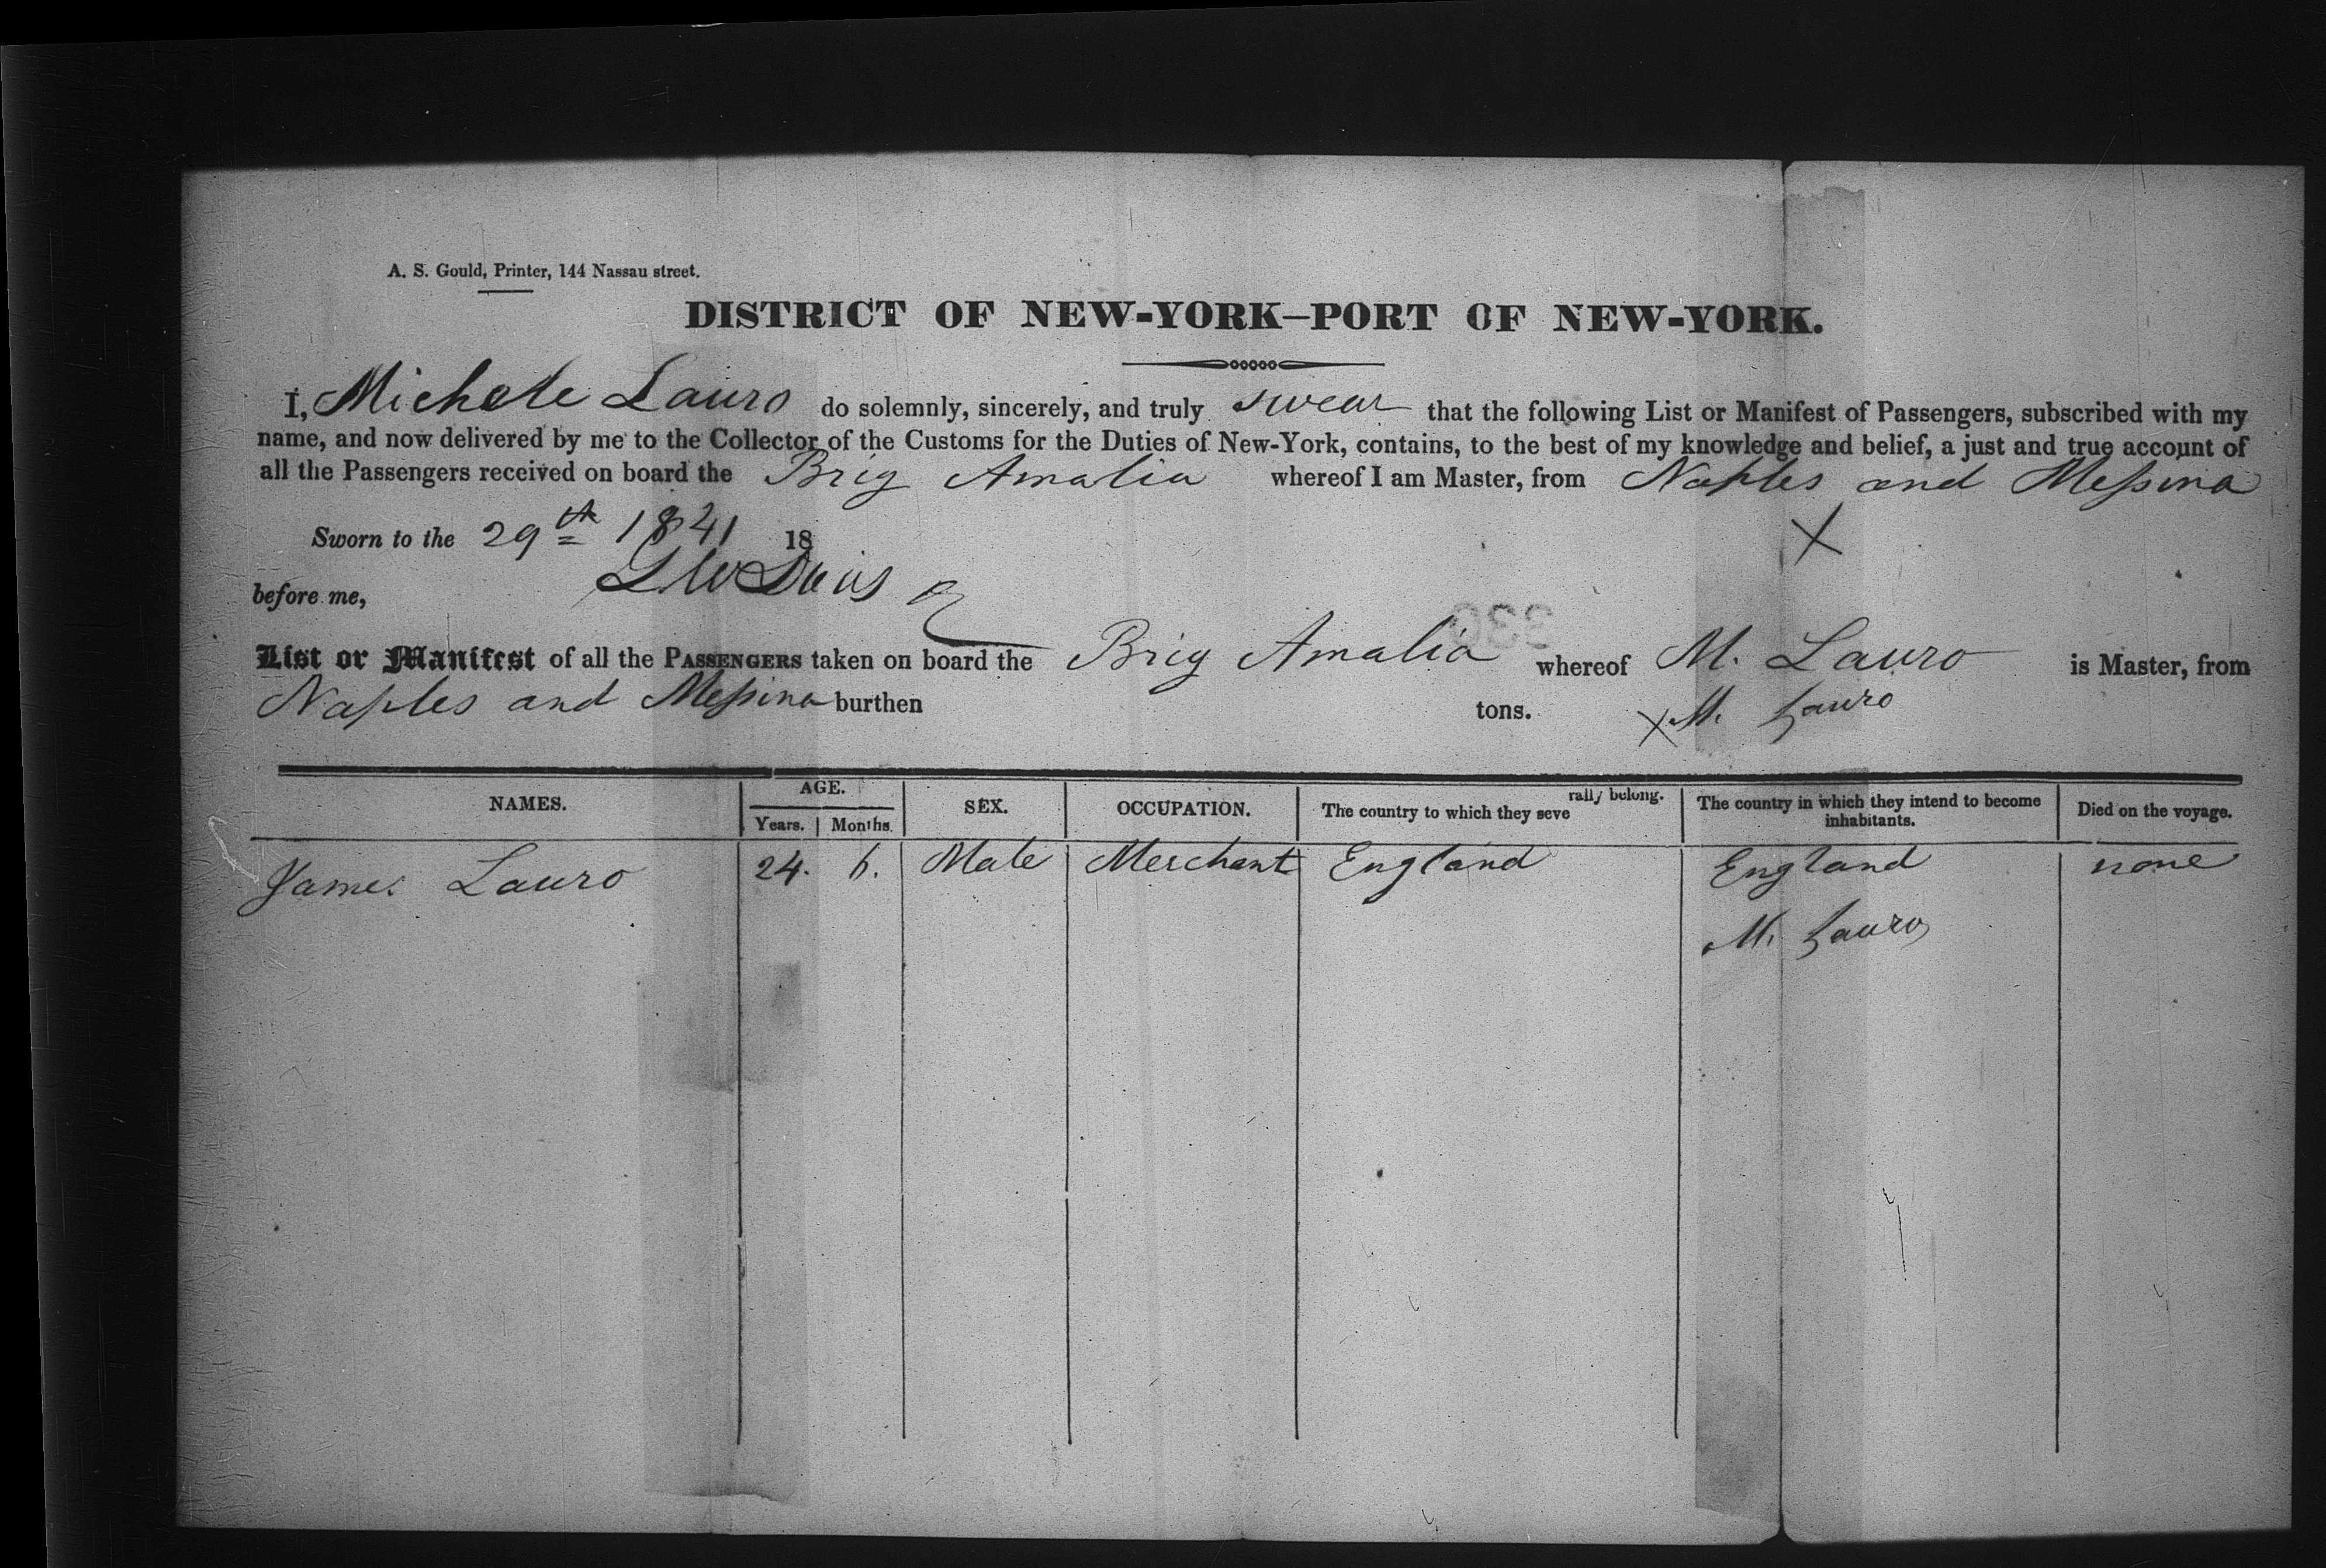 A. S. Gould, Printer, 144 Nassau street.
DISTRICT OF NEW-YORK—PORT OF NEW-YORK.
I, Michele Lauro do solemnly, sincerely, and truly swear that the following List or Manifest of Passengers, subscribed with my
name, and now delivered by me to the Collector of the Customs for the Duties of New-York, contains, to the best of my knowledge and belief, a just and true account of
all the Passengers received on board the Brig Amalia whereof I am Master, from Naples and Messina
Sworn to the 29th 1841 18 X
before me,
List or Manifest of all the PASSENGERS taken on board the Brig Amalia whereof M. Lauro is Master, from
Naples and Messina burthen tons. X M. Lauro
NAMES. AGE. Years. Months. SEX. OCCUPATION. The country to which they severally belong. The country in which they intend to become inhabitants. Died on the voyage.
James Lauro 24. 6. Male Merchant England England none
M. Lauro